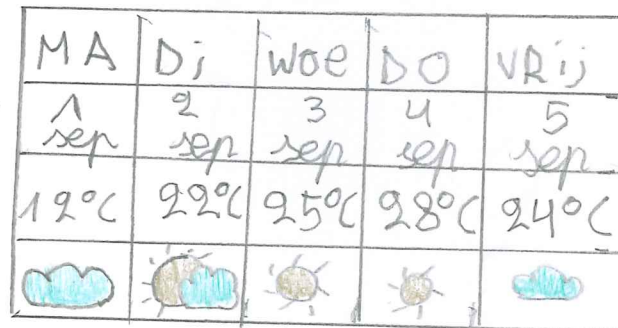 MA Di WOE DO VRij
1 sep 2 sep 3 sep 4 sep 5 sep
12°C 22°C 25°C 28°C 24°C